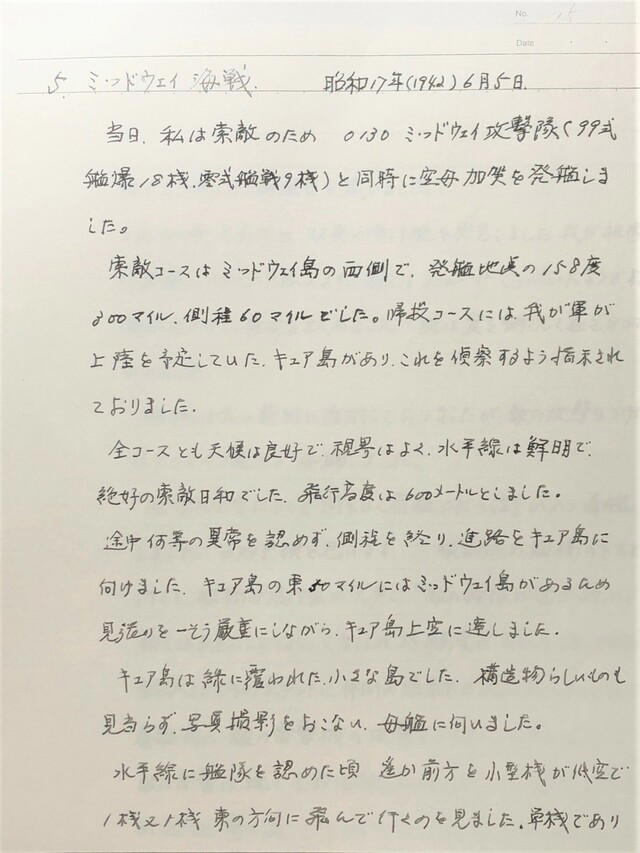 No. 15
Date ・ ・
5. ミッドウェイ海戦. 昭和17年(1942)6月5日.
当日、私は索敵のため 0130 ミッドウェイ攻撃隊(99式
艦爆18機、零式艦戦9機)と同時に空母加賀を発艦しま
した。
索敵コースはミッドウェイ島の西側で、発艦地点の158度
300マイル、側程60マイルでした。帰投コースには、我が軍が
上陸を予定していた、キュア島があり、これを偵察するよう指示され
ておりました.
全コースとも天候は良好で、視界はよく、水平線は鮮明で、
絶好の索敵日和でした. 飛行高度は600メートルとしました。
途中何等の異常を認めず、側程を終り、進路をキュア島に
向けました. キュア島の東50マイルにはミッドウェイ島があるため
見張りを一そう厳重にしながら、キュア島上空に達しました.
キュア島は緑に覆われた、小さな島でした. 構造物らしいものも
見当らず、写真撮影をおこない、母艦に向いました。
水平線に艦隊を認めた頃 遙か前方を小型機が低空で
1機又1機 東の方向に飛んで行くのを見ました. 単機であり